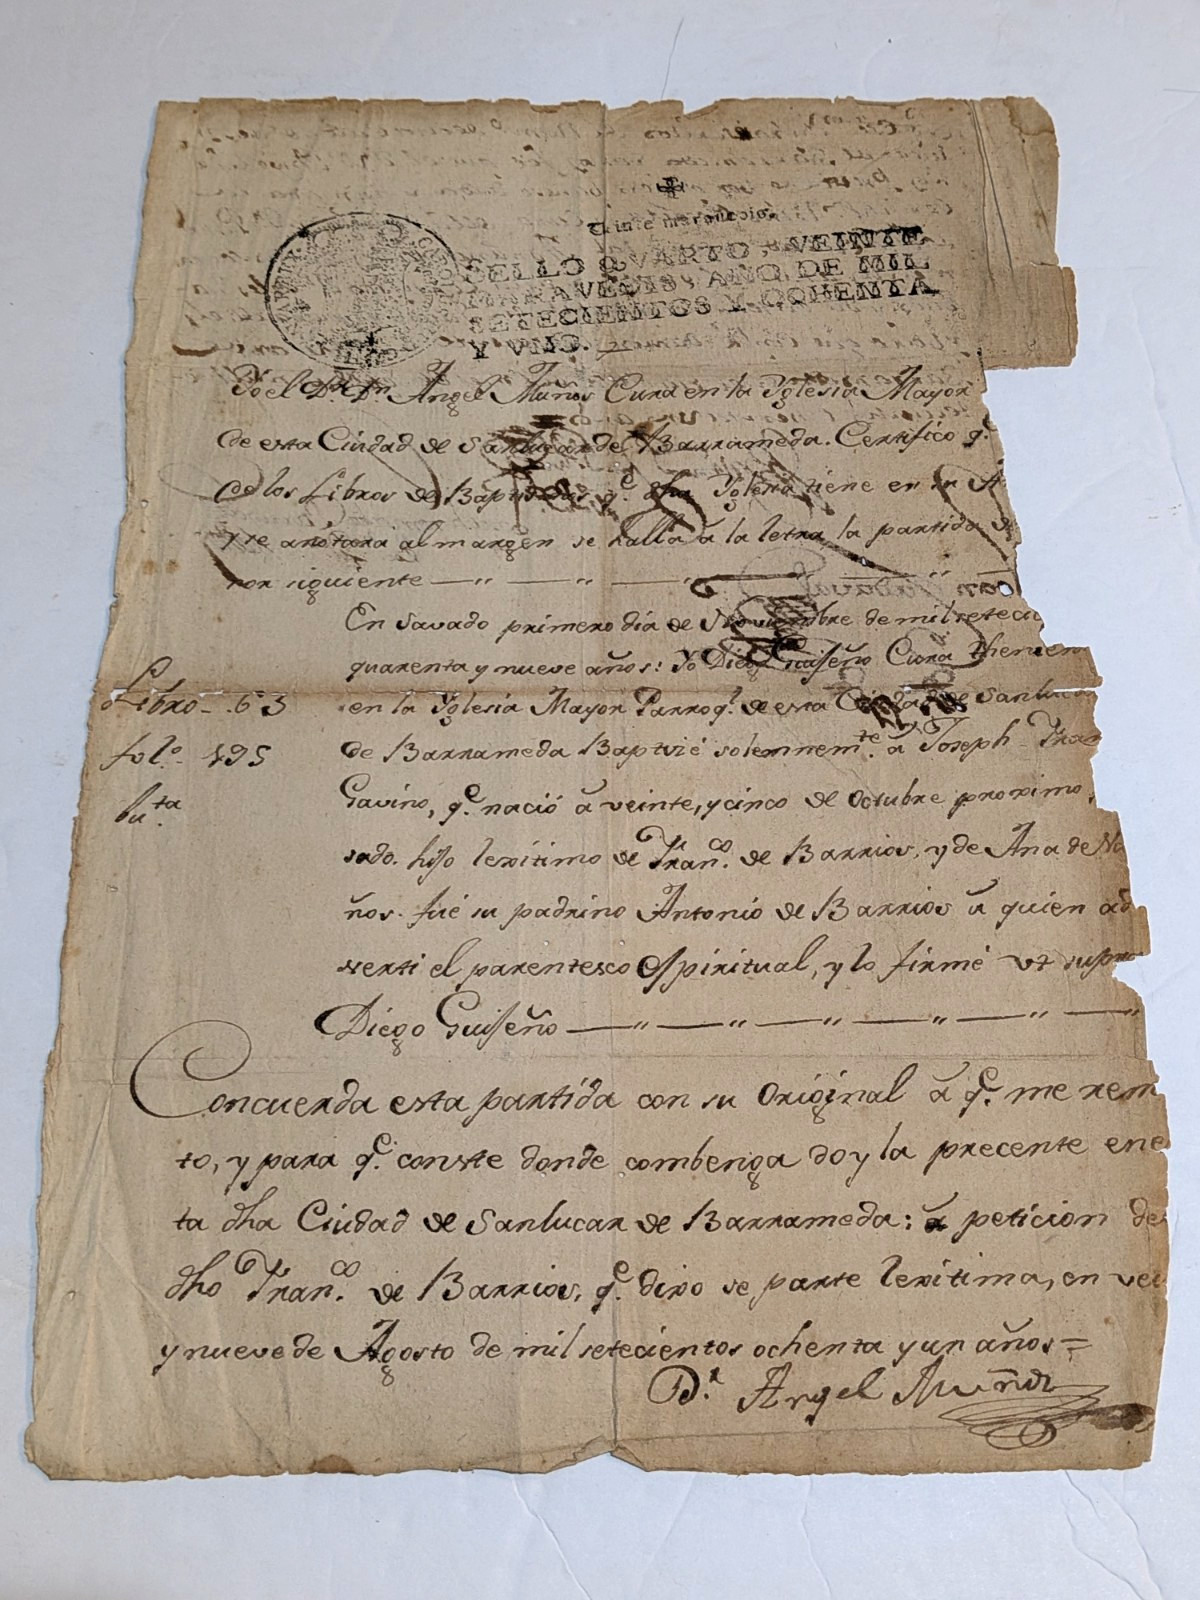 Veinte maravedis.
SELLO QVARTO, VEINTE
MARAVEDIS, AÑO DE MIL
SETECIENTOS Y OCHENTA
Y VNO.
Yo el Dr. Dn Ángel Muños Cura en la Yglesia Mayor
de esta Ciudad de Sanlucar de Barrameda. Certifico q.e
de los Libros de Baptismos q.e dha Yglesia tiene en su A
y se anotara al margen se halla â la letra, la partida
nor siguiente
En Savado primero dia de Noviembre de mil setecie
quarenta y nueve años: Yo Diego Guiseño Cura thenien
Libro - 63
en la Yglesia Mayor Parroq.l de esta Ciudad de Sanlucar
fol.o 195
de Barrameda Baptizé solemnem.te â Joseph Fran
bu.ta
Gavino, q.e nació â veinte, y cinco de Octubre proximo
sado. hijo lexitimo de Fran.co de Barrios, y de Ana de
ños. fué su padrino Antonio de Barrios â quien ad
verti el parentesco Espiritual, y lo firmé vt supra
Diego Guiseño
Concuerda esta partida con su Original â q.e me remi
to, y para q.e conste donde combenga doy la precente en e
ta dha Ciudad de Sanlucar de Barrameda: â peticion de
dho Fran.co de Barrios, q.e dixo se parte lexitima, en vei
y nueve de Agosto de mil setecientos ochenta y un años=
D.r Angel Muñoz